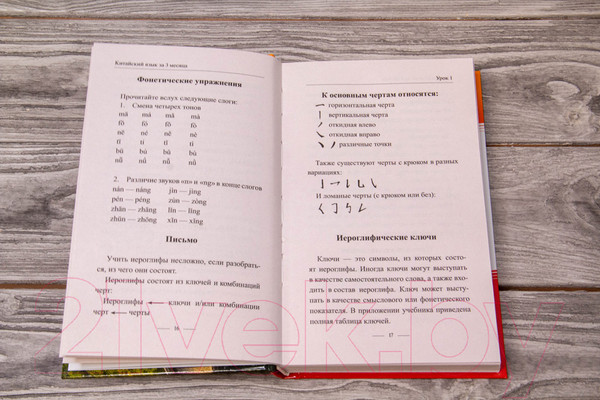 Китайский язык за 3 месяца
Фонетические упражнения
Прочитайте вслух следующие слоги:
1. Смена четырех тонов
2. Различие звуков «n» и «ng» в конце слогов
nán — náng jīn — jīng
pén — péng zūn — zōng
zhān — zhāng lín — líng
zhūn — zhōng xīn — xīng
Письмо
Учить иероглифы несложно, если разобрать-
ся, из чего они состоят.
Иероглифы состоят из ключей и комбинаций
черт:
Иероглифы ← ключи и/или комбинации
черт ← черты
16
Урок 1
К основным чертам относятся:
горизонтальная черта
вертикальная черта
откидная влево
откидная вправо
различные точки
Также существуют черты с крюком в разных
вариациях:
И ломаные черты (с крюком или без):
Иероглифические ключи
Ключи — это символы, из которых состо-
ят иероглифы. Иногда ключи могут выступать
в качестве самостоятельного слова, а также вхо-
дить в состав иероглифа. Ключ может высту-
пать в качестве смыслового или фонетического
показателя. В приложении учебника приведена
полная таблица ключей.
17
21vek.by